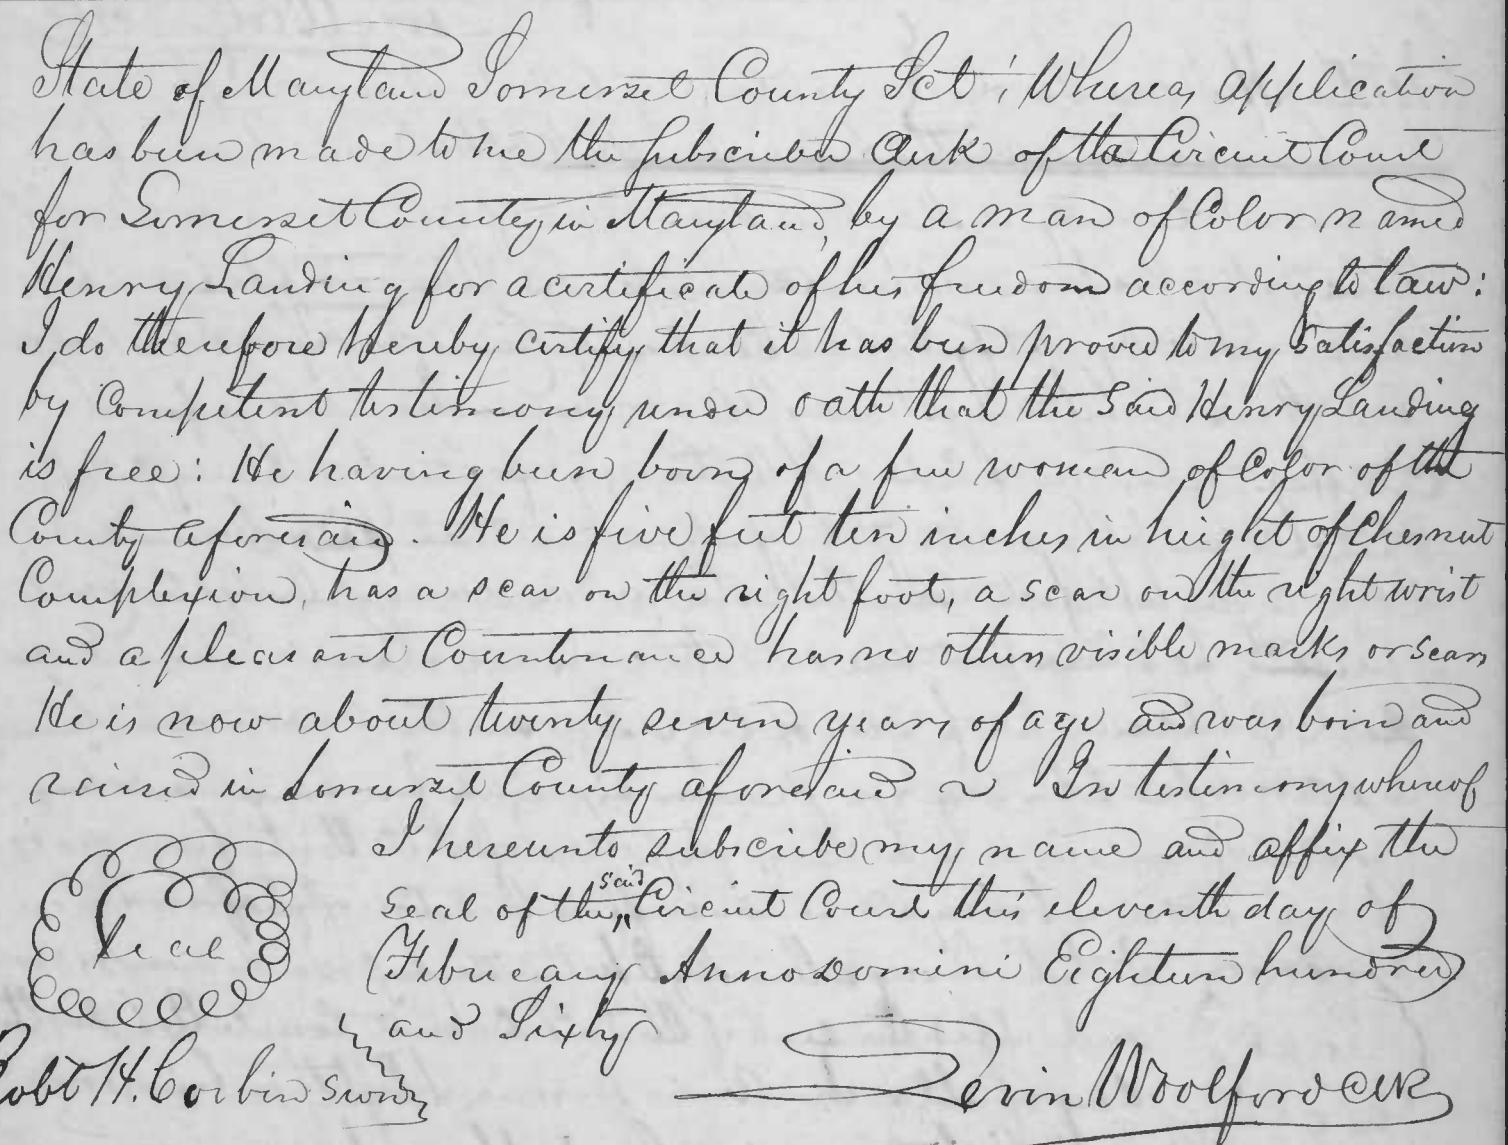 State of Maryland Somerset County Sct ; Whereas application
has been made to me the subscriber Clerk of the Circuit Court
for Somerset County in Maryland, by a man of Color named
Henry Landing for a certificate of his freedom according to law:
I do therefore hereby certify that it has been proved to my satisfaction
by competent testimony under oath that the said Henry Landing
is free: He having been born of a free woman of Color of the
County aforesaid. He is five feet ten inches in height of Chesnut
Complexion, has a scar on the right foot, a scar on the right wrist
and a pleasant Countenance has no others visible marks or scars
He is now about twenty seven years of age and was born and
raised in Somerset County aforesaid ~ In testimony whereof
I hereunto subscribe my name and affix the
seal of the said Circuit Court this eleventh day of
February Anno Domini Eighteen hundred
and Sixty
Seal
Robt H. Corbin sworn
Levin Woolford Clk